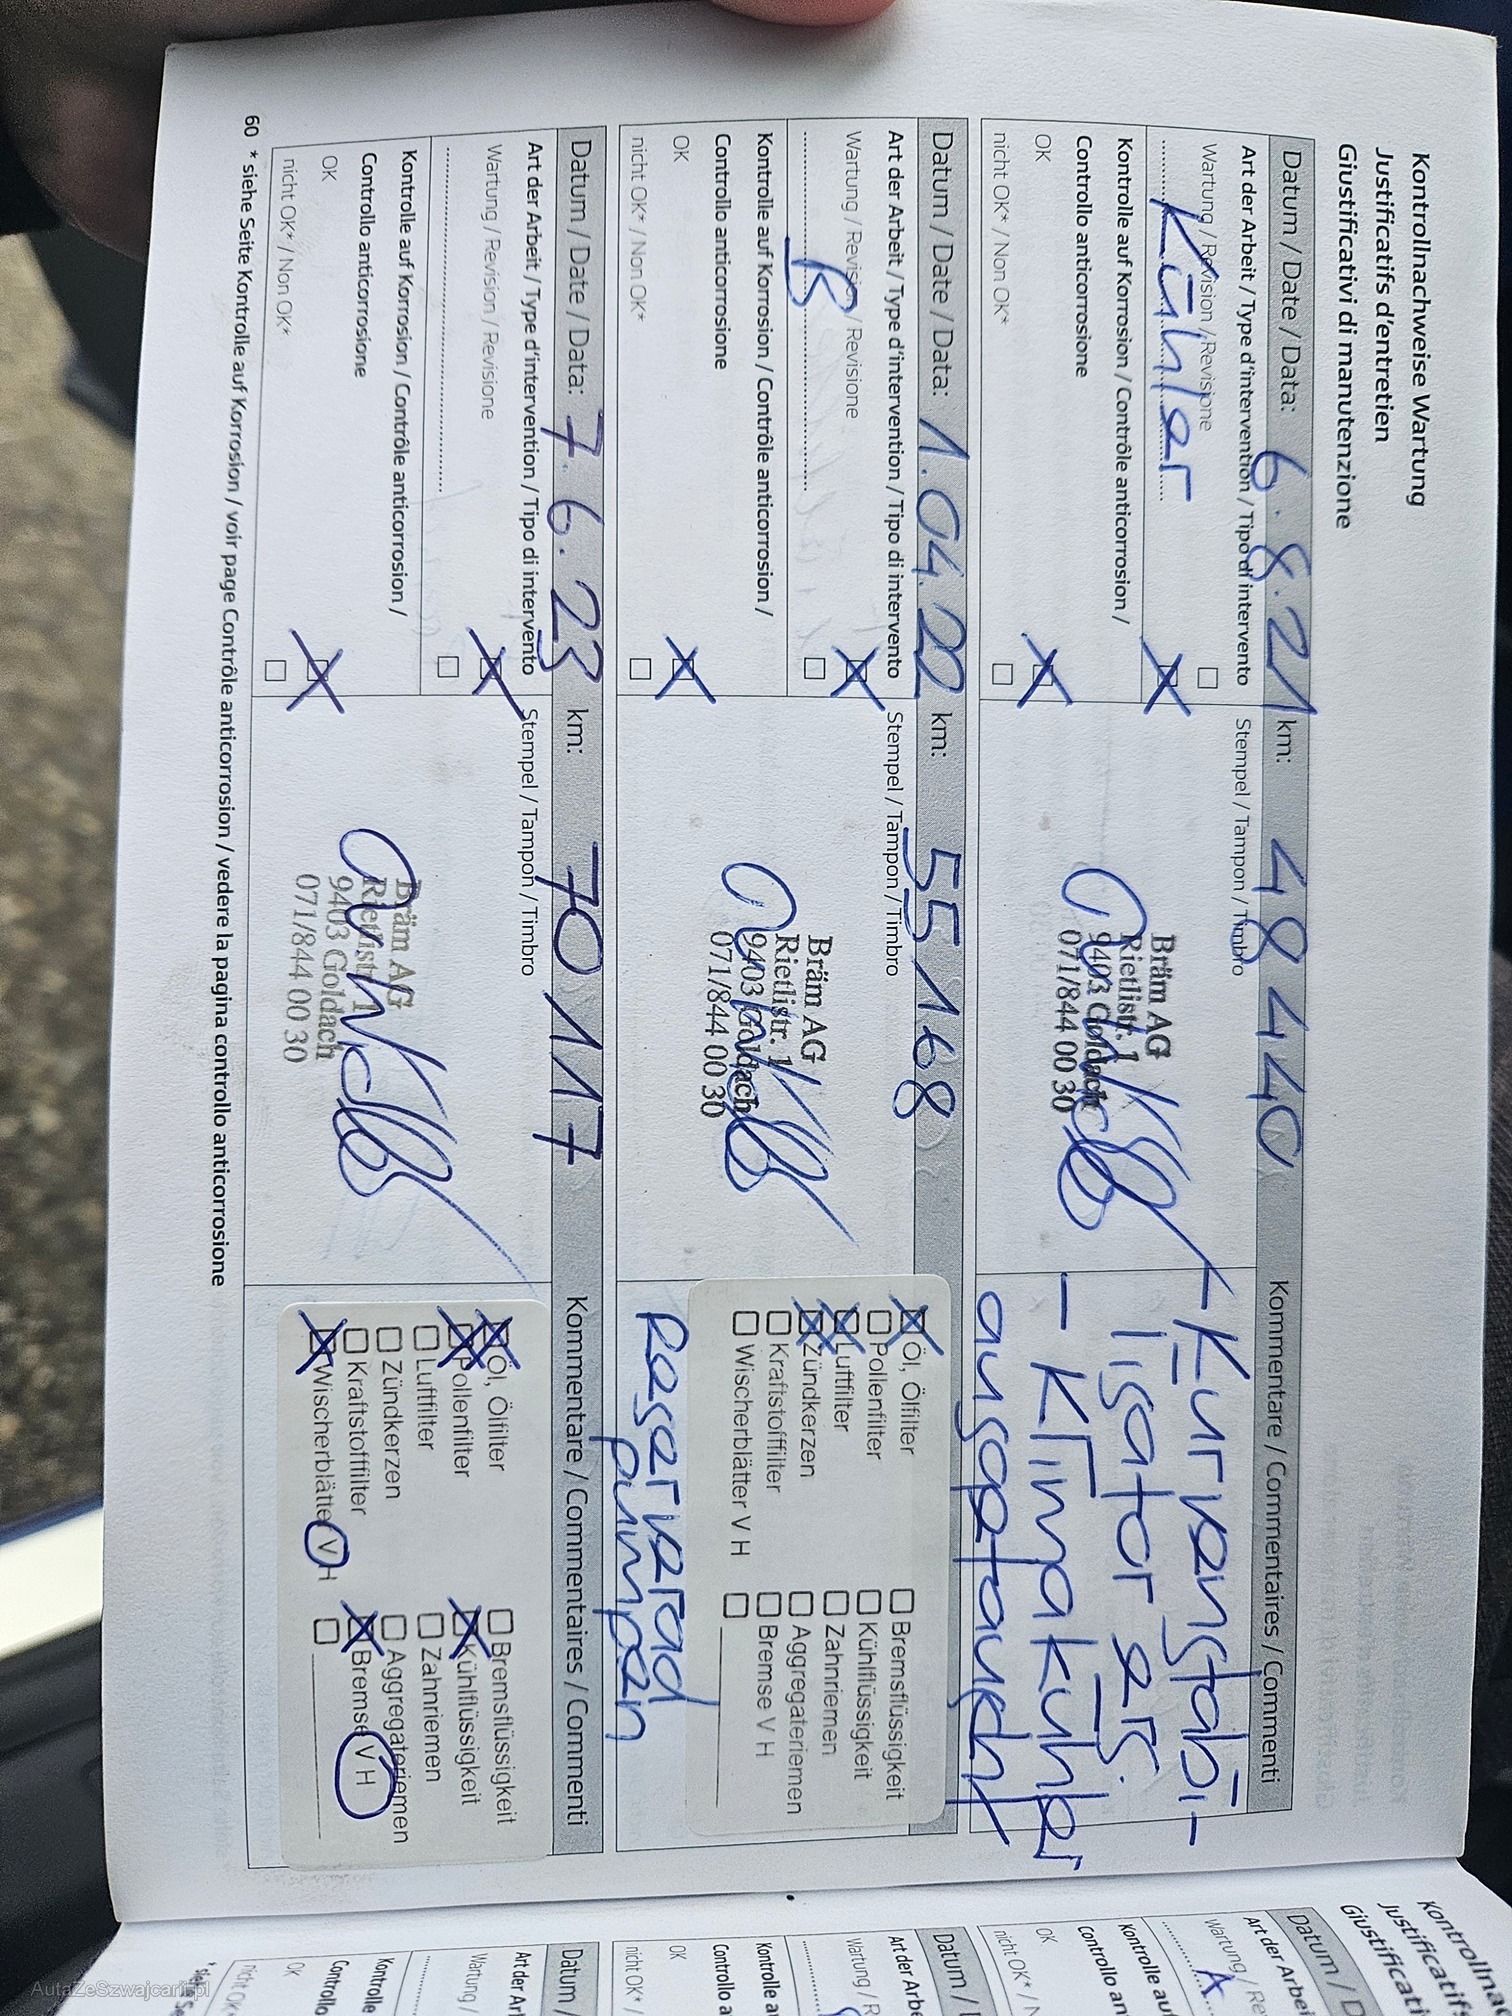 Kontrollnachweise Wartung
Justificatifs d'entretien
Giustificativi di manutenzione
Datum / Date / Data: 6.8.21 km: 48440 Kommentare / Commentaires / Commenti
Art der Arbeit / Type d'intervention / Tipo di intervento
Wartung / Revision / Revisione
Kühler
Kontrolle auf Korrosion / Contrôle anticorrosion /
Controllo anticorrosione
OK
nicht OK* / Non OK*
Stempel / Tampon / Timbro
Bräm AG
Rietlistr. 1
9403 Goldach
071/844 00 30
- Kurvenstabi-
lisator ers.
- Klimakühler
ausgetauscht
Datum / Date / Data: 1.04.22 km: 55168
Art der Arbeit / Type d'intervention / Tipo di intervento
Wartung / Revision / Revisione
B
Kontrolle auf Korrosion / Contrôle anticorrosion /
Controllo anticorrosione
OK
nicht OK* / Non OK*
Stempel / Tampon / Timbro
Bräm AG
Rietlistr. 1
9403 Goldach
071/844 00 30
Öl, Ölfilter
Pollenfilter
Luftfilter
Zündkerzen
Kraftstofffilter
Wischerblätter V H
Bremsflüssigkeit
Kühlflüssigkeit
Zahnriemen
Aggregateriemen
Bremse V H
Reserverad
pumpen
Datum / Date / Data: 7.6.23 km: 70117 Kommentare / Commentaires / Commenti
Art der Arbeit / Type d'intervention / Tipo di intervento
Wartung / Revision / Revisione
Kontrolle auf Korrosion / Contrôle anticorrosion /
Controllo anticorrosione
OK
nicht OK* / Non OK*
Stempel / Tampon / Timbro
Bräm AG
Rietlistr. 1
9403 Goldach
071/844 00 30
Öl, Ölfilter
Pollenfilter
Luftfilter
Zündkerzen
Kraftstofffilter
Wischerblätter V H
Bremsflüssigkeit
Kühlflüssigkeit
Zahnriemen
Aggregateriemen
Bremse V H
60 * siehe Seite Kontrolle auf Korrosion / voir page Contrôle anticorrosion / vedere la pagina controllo anticorrosione
Kontrollna
Justificatif
Giustificat
Datum / D
Art der Arbei
Wartung / Re
A
Kontrolle au
Controllo an
OK
nicht OK* / N
Datum /
Art der Arbe
Wartung / R
Kontrolle a
Controllo a
OK
nicht OK* /
Datum /
Art der Art
Wartung /
Kontrolle
Controllo
OK
nicht OK*
* siehe Se
AutaZeSzwajcarii.pl